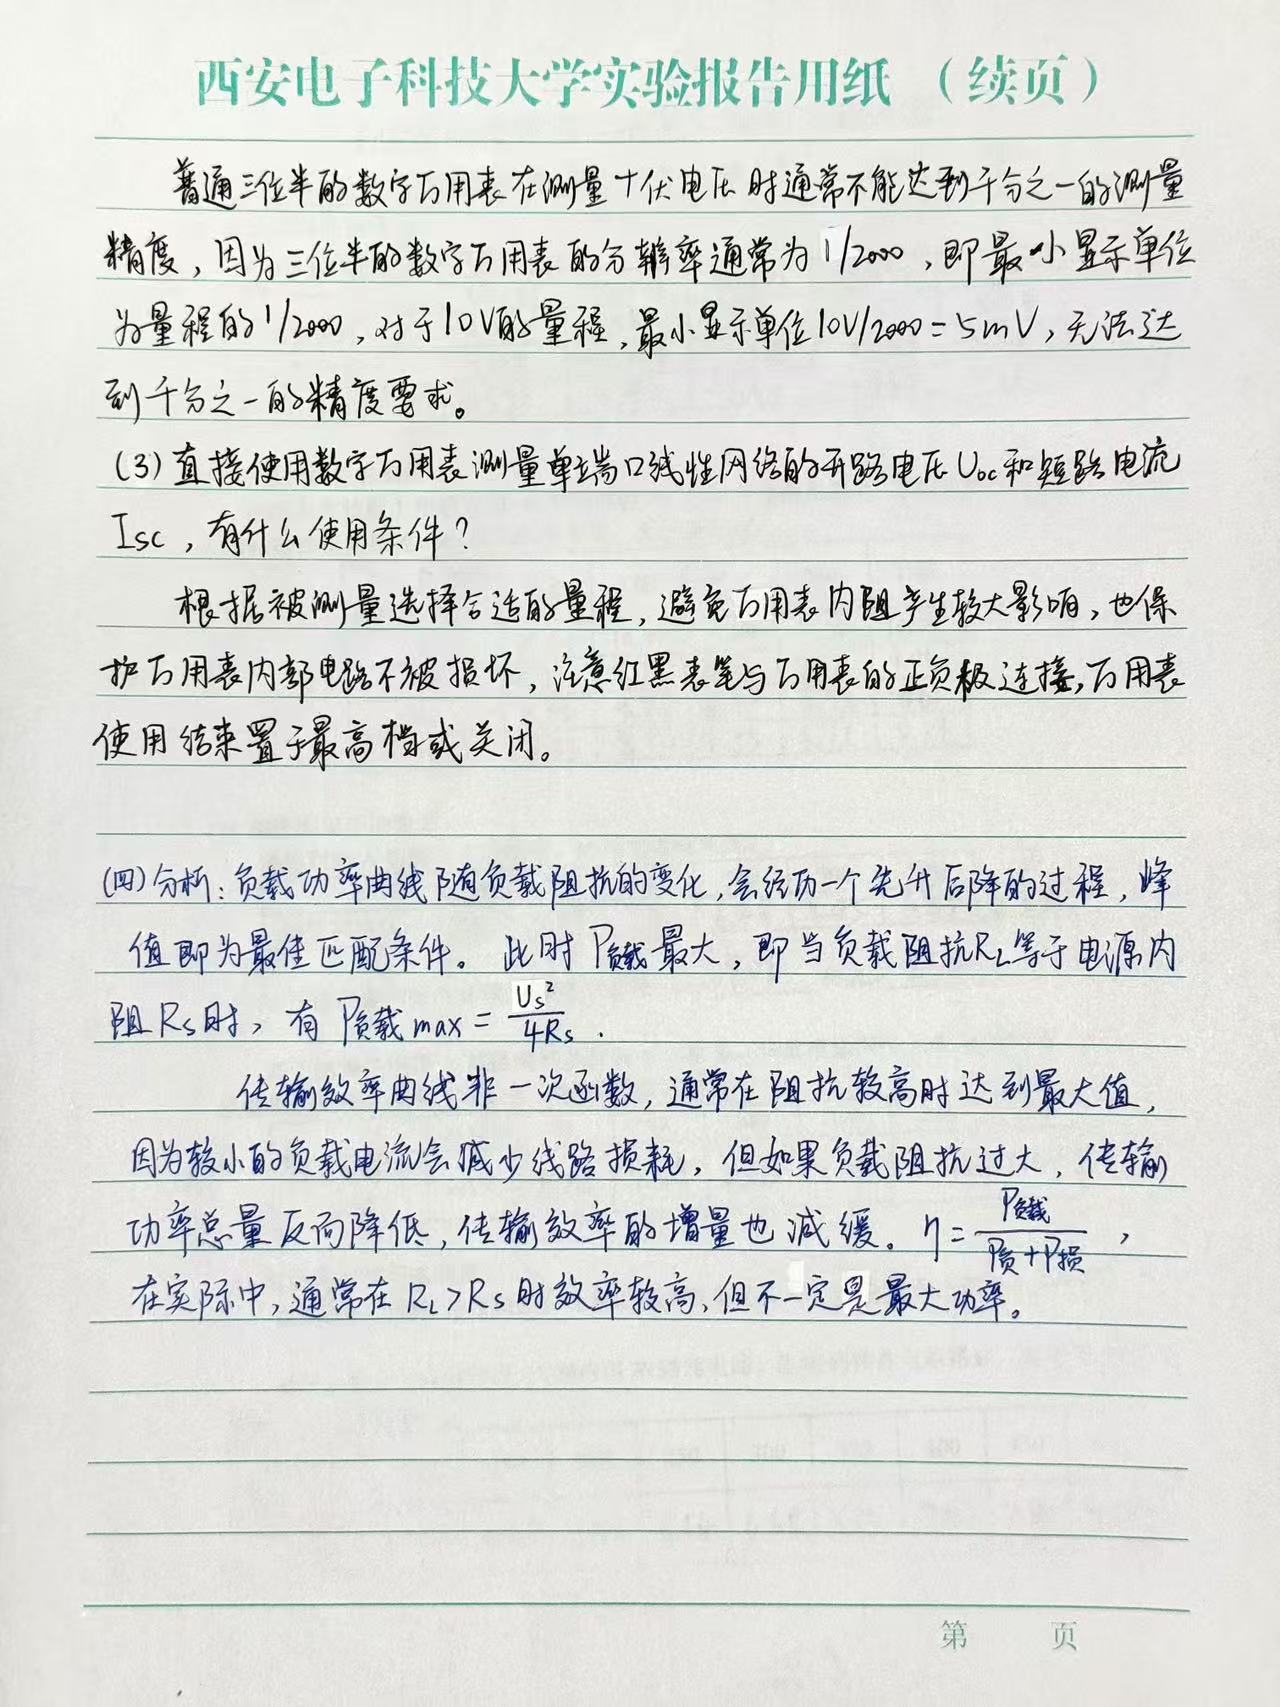 西安电子科技大学实验报告用纸（续页）
普通三位半的数字万用表在测量十伏电压时通常不能达到千分之一的测量
精度，因为三位半的数字万用表的分辨率通常为1/2000，即最小显示单位
为量程的1/2000，对于10V的量程，最小显示单位10V/2000=5mV，无法达
到千分之一的精度要求。
(3)直接使用数字万用表测量单端口线性网络的开路电压Uoc和短路电流
Isc，有什么使用条件？
根据被测量选择合适的量程，避免万用表内阻产生较大影响，也保
护万用表内部电路不被损坏，注意红黑表笔与万用表的正负极连接，万用表
使用结束置于最高档或关闭。
(四)分析：负载功率曲线随负载阻抗的变化，会经历一个先升后降的过程，峰
值即为最佳匹配条件。此时P负载最大，即当负载阻抗RL等于电源内
阻Rs时，有P负载max=Us²/4Rs.
传输效率曲线非一次函数，通常在阻抗较高时达到最大值，
因为较小的负载电流会减少线路损耗，但如果负载阻抗过大，传输
功率总量反而降低，传输效率的增量也减缓。η=P负载/P负+P损，
在实际中，通常在RL>Rs时效率较高，但不一定是最大功率。
第 页